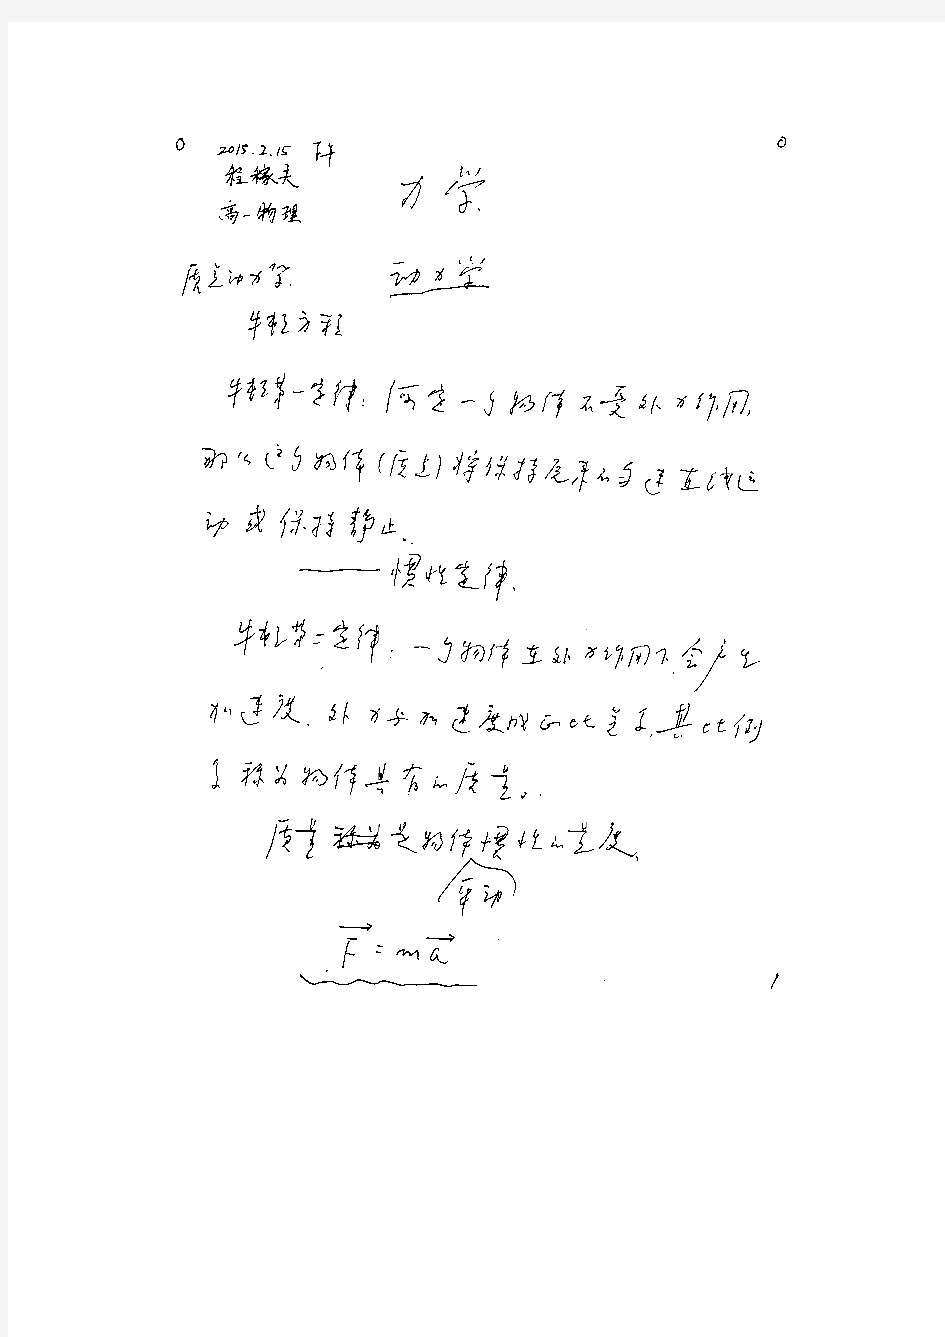 2015.2.15 下午
程稼夫
高一物理
力学
质点动力学
动力学
牛顿方程
牛顿第一定律：假定一个物体不受外力作用，
那么这个物体(质点)将保持原来的匀速直线运
动或保持静止.
—— 惯性定律.
牛顿第二定律：一个物体在外力作用下会产生
加速度、外力与加速度成正比关系，其比例
子称为物体具有的质量。
质量是物体惯性的量度、
平动
F = ma
1